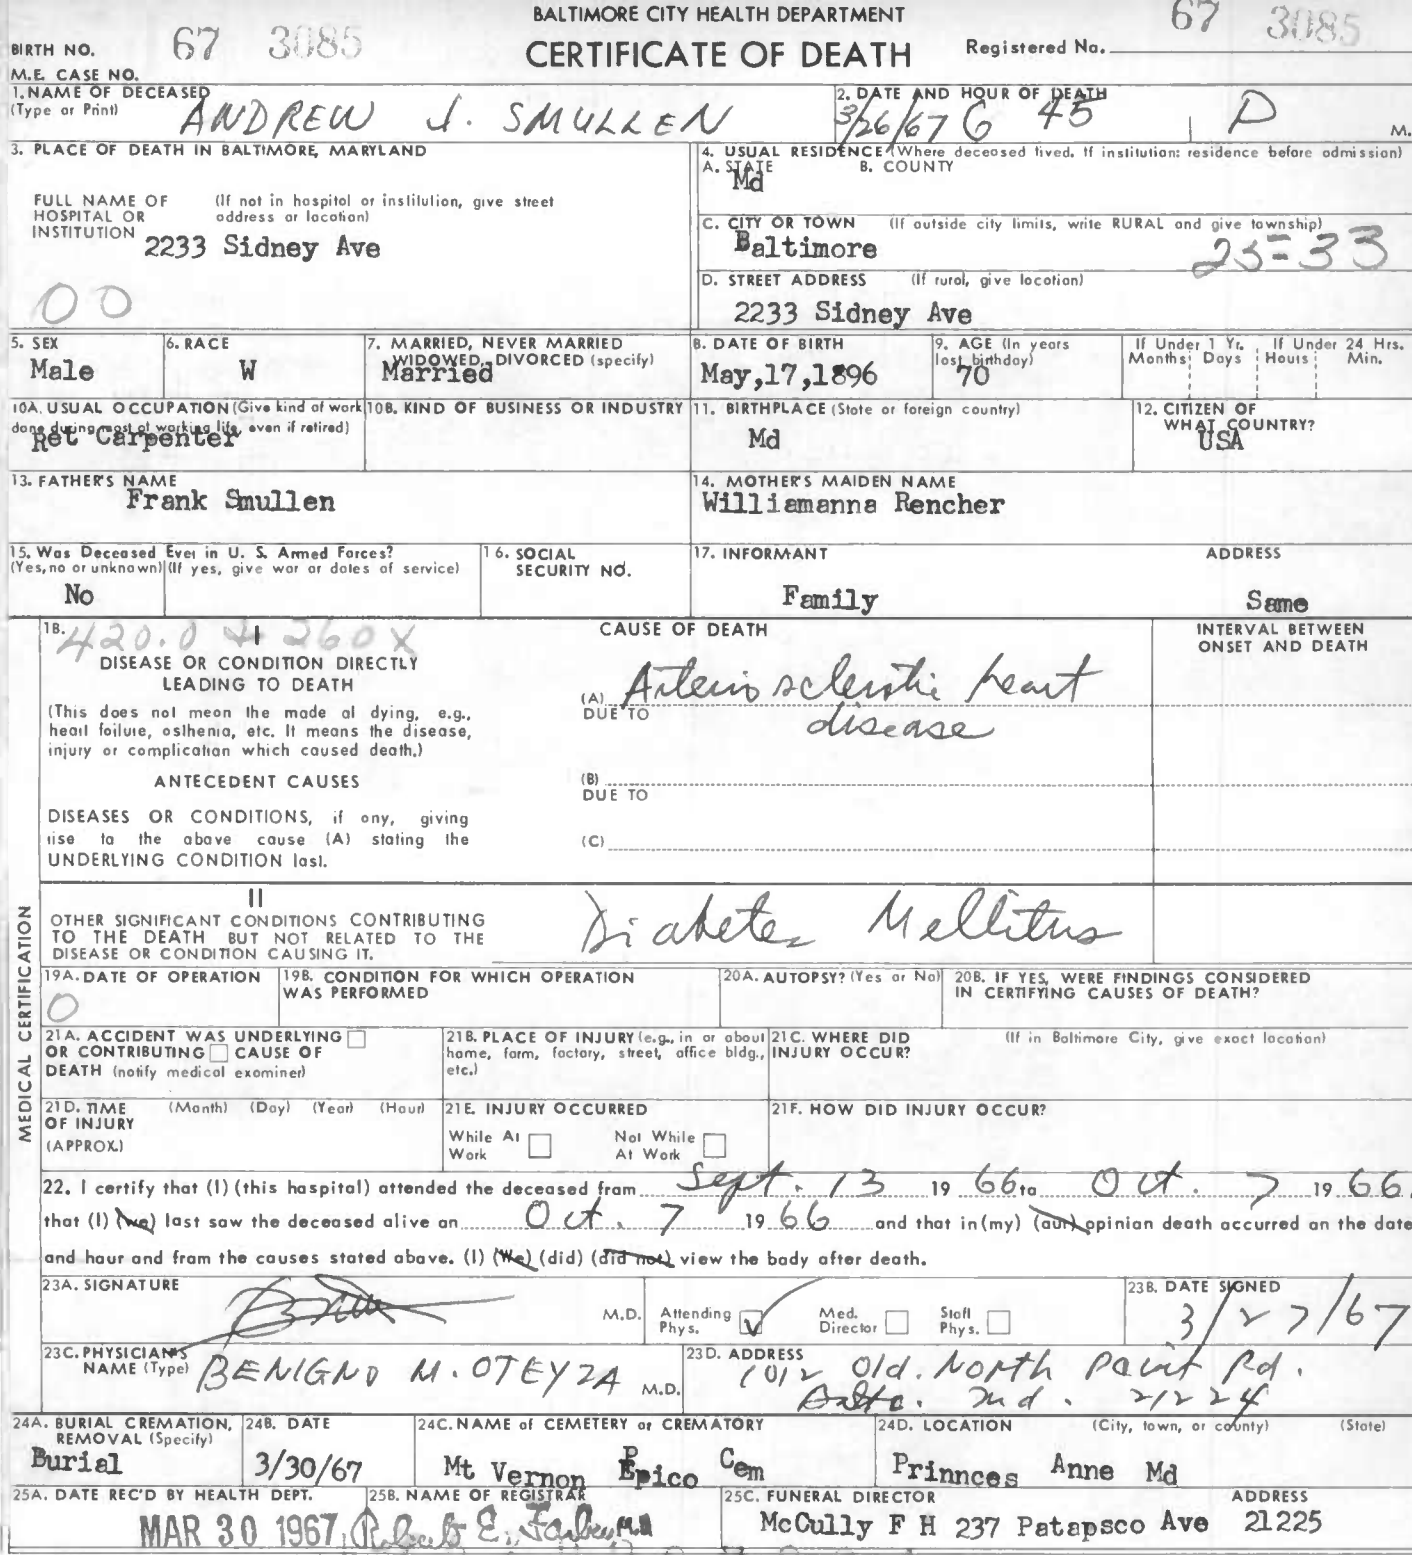 BALTIMORE CITY HEALTH DEPARTMENT
CERTIFICATE OF DEATH
BIRTH NO. 67 3085
Registered No. 67 3085
M.E. CASE NO.
1. NAME OF DECEASED
(Type or Print) ANDREW J. SMULLEN
2. DATE AND HOUR OF DEATH
3/26/67 6 45 P M.
3. PLACE OF DEATH IN BALTIMORE, MARYLAND
FULL NAME OF HOSPITAL OR INSTITUTION
(If not in hospital or institution, give street address or location)
2233 Sidney Ave
00
4. USUAL RESIDENCE (Where deceased lived. If institution: residence before admission)
A. STATE B. COUNTY
Md
C. CITY OR TOWN (If outside city limits, write RURAL and give township)
Baltimore 25-33
D. STREET ADDRESS (If rural, give location)
2233 Sidney Ave
5. SEX
Male
6. RACE
W
7. MARRIED, NEVER MARRIED
WIDOWED, DIVORCED (specify)
Married
8. DATE OF BIRTH
May,17,1896
9. AGE (In years
last birthday)
70
If Under 1 Yr.
Months Days
If Under 24 Hrs.
Hours Min.
10A. USUAL OCCUPATION (Give kind of work
done during most of working life, even if retired)
Ret Carpenter
10B. KIND OF BUSINESS OR INDUSTRY
11. BIRTHPLACE (State or foreign country)
Md
12. CITIZEN OF
WHAT COUNTRY?
USA
13. FATHER'S NAME
Frank Smullen
14. MOTHER'S MAIDEN NAME
Williamanna Rencher
15. Was Deceased Ever in U. S. Armed Forces?
(Yes, no or unknown) (If yes, give war or dates of service)
No
16. SOCIAL
SECURITY NO.
17. INFORMANT ADDRESS
Family Same
MEDICAL CERTIFICATION
18. 420.0 + 260X
I
DISEASE OR CONDITION DIRECTLY
LEADING TO DEATH
(This does not mean the mode of dying, e.g.,
heart failure, asthenia, etc. It means the disease,
injury or complication which caused death.)
ANTECEDENT CAUSES
DISEASES OR CONDITIONS, if any, giving
rise to the above cause (A) stating the
UNDERLYING CONDITION last.
CAUSE OF DEATH
(A) Arteriosclerotic heart
DUE TO disease
(B)
DUE TO
(C)
INTERVAL BETWEEN
ONSET AND DEATH
II
OTHER SIGNIFICANT CONDITIONS CONTRIBUTING
TO THE DEATH BUT NOT RELATED TO THE
DISEASE OR CONDITION CAUSING IT.
Diabetes Mellitus
19A. DATE OF OPERATION
0
19B. CONDITION FOR WHICH OPERATION
WAS PERFORMED
20A. AUTOPSY? (Yes or No)
20B. IF YES, WERE FINDINGS CONSIDERED
IN CERTIFYING CAUSES OF DEATH?
21A. ACCIDENT WAS UNDERLYING
OR CONTRIBUTING CAUSE OF
DEATH (notify medical examiner)
21B. PLACE OF INJURY (e.g., in or about
home, farm, factory, street, office bldg.,
etc.)
21C. WHERE DID (If in Baltimore City, give exact location)
INJURY OCCUR?
21D. TIME (Month) (Day) (Year) (Hour)
OF INJURY
(APPROX.)
21E. INJURY OCCURRED
While At Work
Not While At Work
21F. HOW DID INJURY OCCUR?
22. I certify that (I) (this hospital) attended the deceased from Sept. 13 19 66 to Oct. 7 19 66,
that (I) (we) last saw the deceased alive on Oct. 7 19 66 and that in (my) (our) opinion death occurred on the date
and hour and from the causes stated above. (I) (We) (did) (did not) view the body after death.
23A. SIGNATURE
M.D.
Attending Phys. Med. Director Staff Phys.
23B. DATE SIGNED
3/27/67
23C. PHYSICIAN'S
NAME (Type) BENIGNO M. OTEYZA M.D.
23D. ADDRESS
1012 Old North Point Rd.
Balto. Md. 21224
24A. BURIAL CREMATION,
REMOVAL (Specify)
Burial
24B. DATE
3/30/67
24C. NAME of CEMETERY or CREMATORY
Mt Vernon Epico Cem
24D. LOCATION (City, town, or county) (State)
Prinnces Anne Md
25A. DATE REC'D BY HEALTH DEPT.
MAR 30 1967
25B. NAME OF REGISTRAR
Robert E. Farber, M.D.
25C. FUNERAL DIRECTOR ADDRESS
McCully F H 237 Patapsco Ave 21225